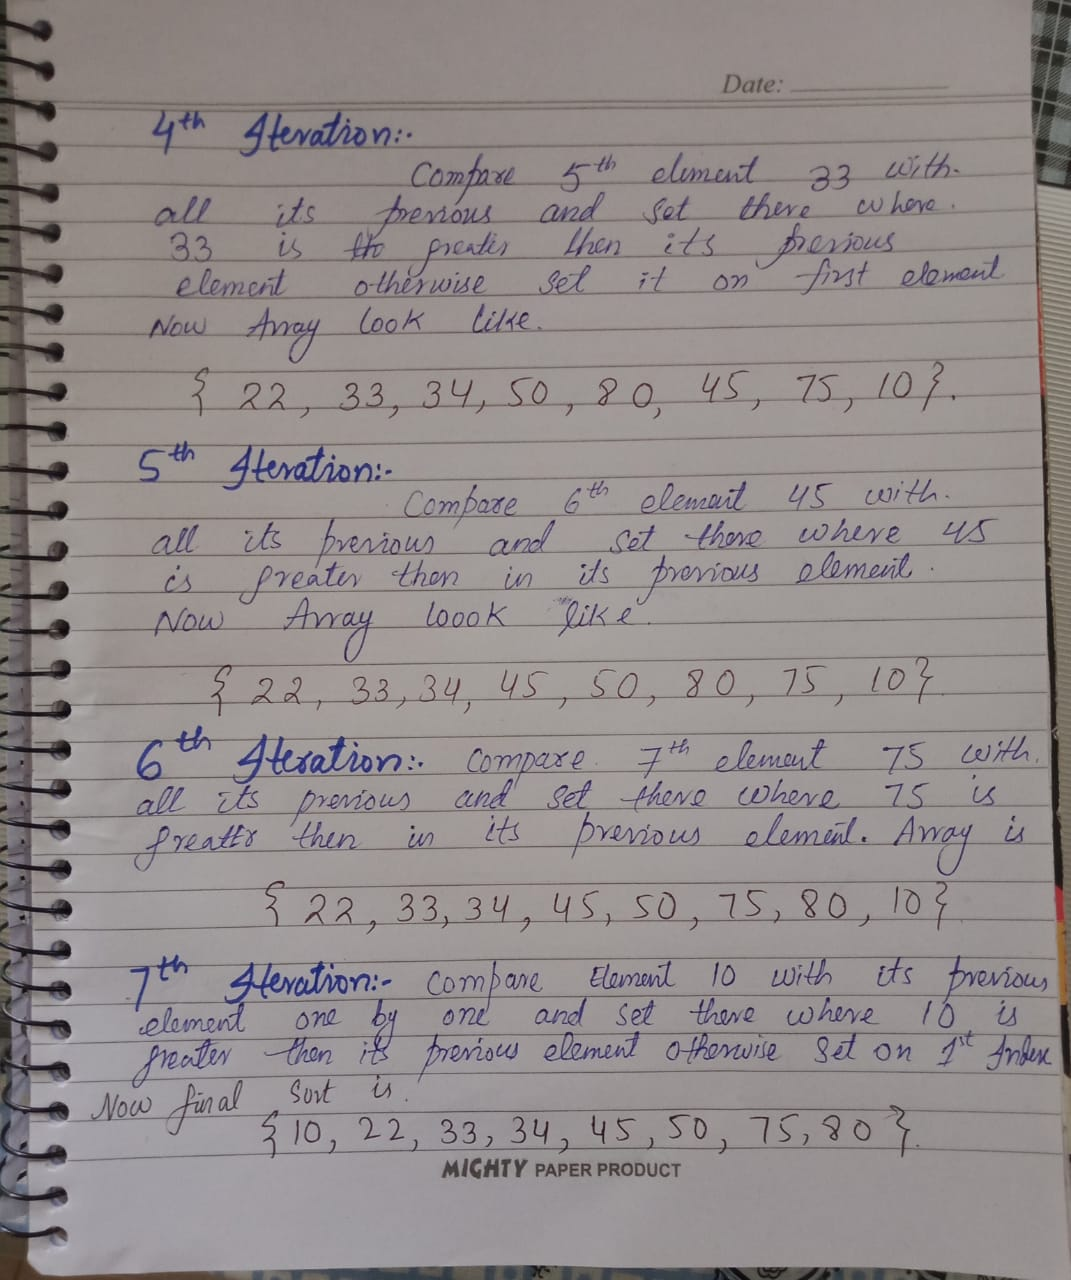 Date:
4th Iteration:-
Compare 5th element 33 with
all its previous and set there where
33 is the greater then its previous
element otherwise set it on first element
Now Array look like.
{ 22, 33, 34, 50, 80, 45, 75, 10}.
5th Iteration:-
Compare 6th element 45 with
all its previous and set there where 45
is greater then in its previous element.
Now Array loook like.
{ 22, 33, 34, 45, 50, 80, 75, 10}
6th Iteration:- Compare 7th element 75 with
all its previous and set there where 75 is
greater then in its previous element. Array is
{ 22, 33, 34, 45, 50, 75, 80, 10}
7th Iteration:- Compare Element 10 with its previous
element one by one and set there where 10 is
greater then its previous element otherwise set on 1st Index
Now final Sort is.
{ 10, 22, 33, 34, 45, 50, 75, 80}.
MIGHTY PAPER PRODUCT